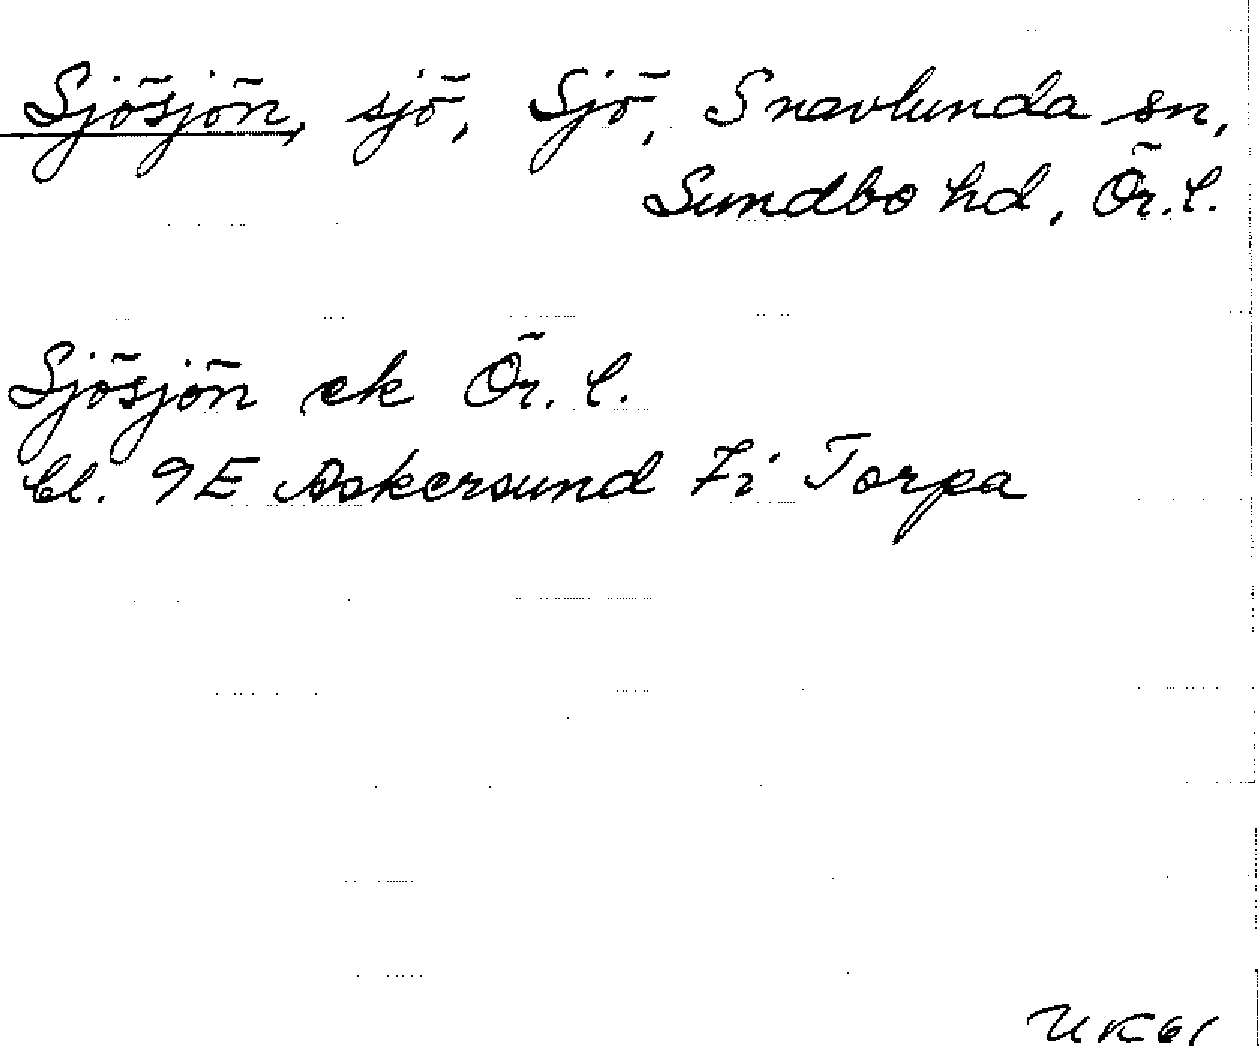 Sjösjön, sjö, Sjö, Snavlunda sn,
Sundbo hd, Ör.l.
Sjösjön ek Ör. l.
bl. 9E Askersund 7i Torpa
UK61